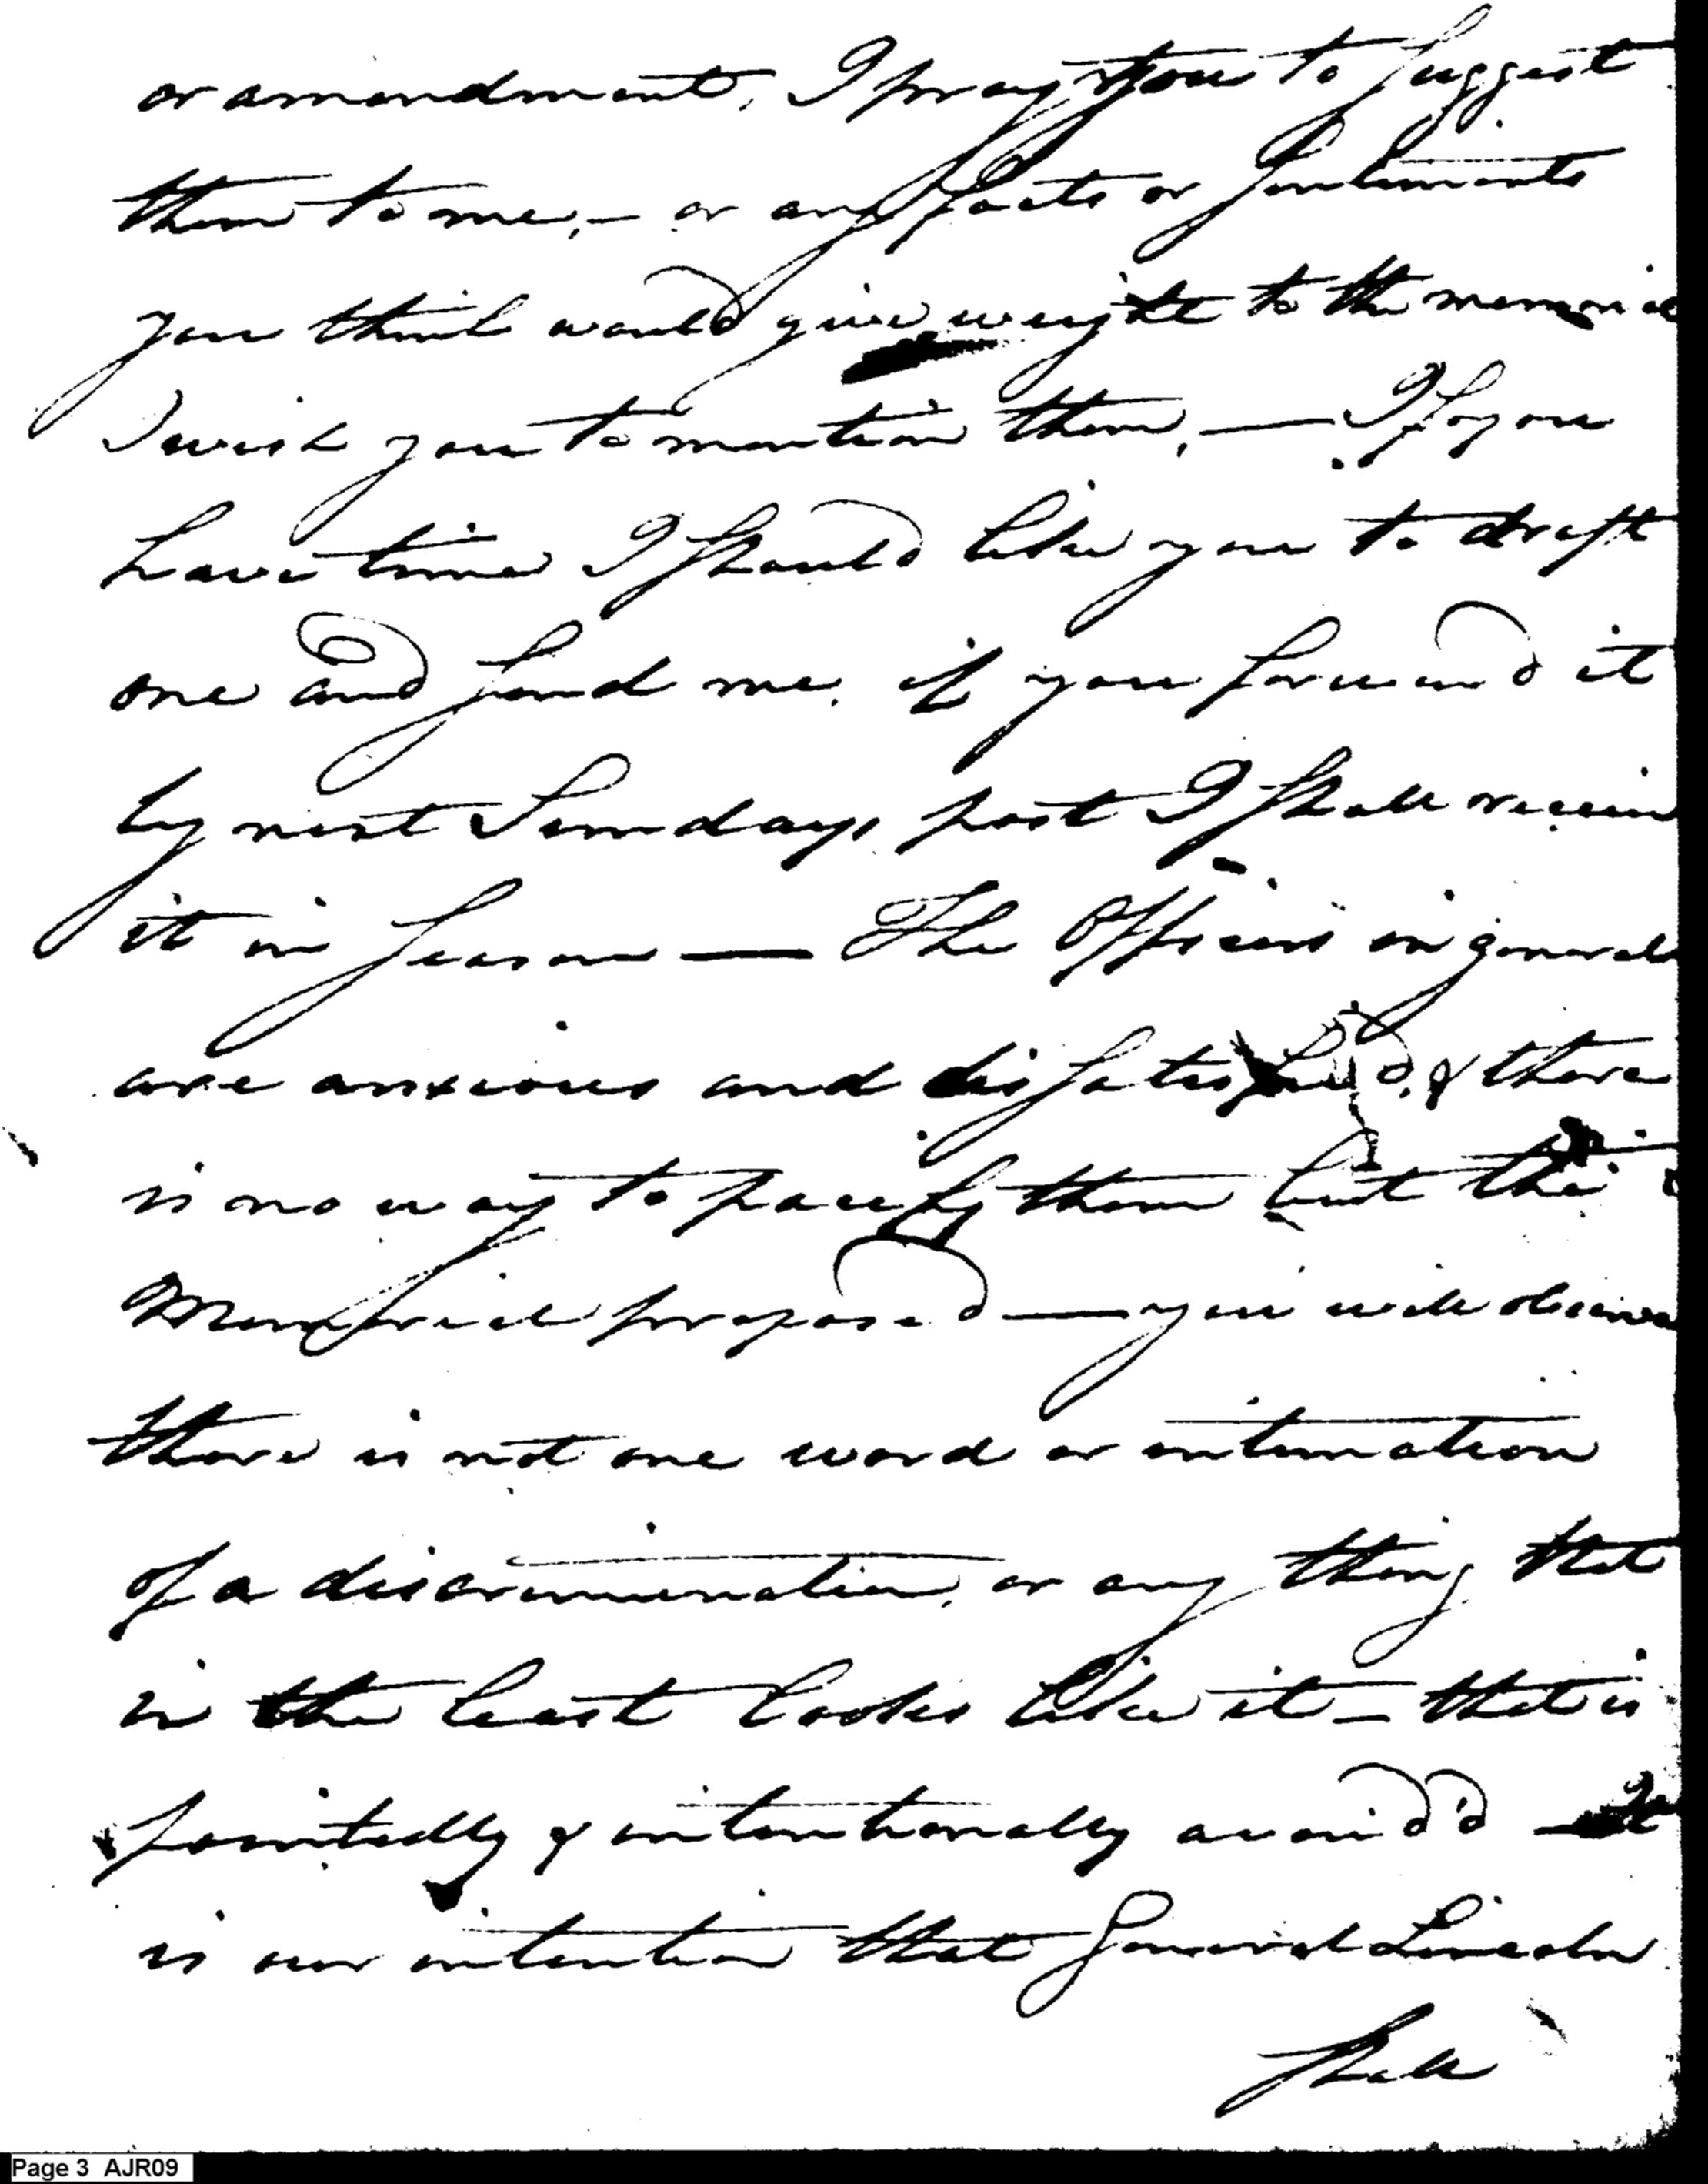 or amendment, I pray you to suggest
them to me, — or any facts or sentiments
you think would give weight to the memorial
I wish you to mention them, — If you
have time I should like you to draft
one and send me, if you forward it
by next Sundays post I shall receive
it in season — The Officers in general
are anxious and dissatisfied, & there
is no way to pacify them but the
Memorial proposed — you will observe
there is not one word or intimation
of a discrimination, or any thing that
in the least looks like it — that is
pointedly & intentionally avoid'd — It
is our intention that General Lincoln
shall
Page 3 AJR09